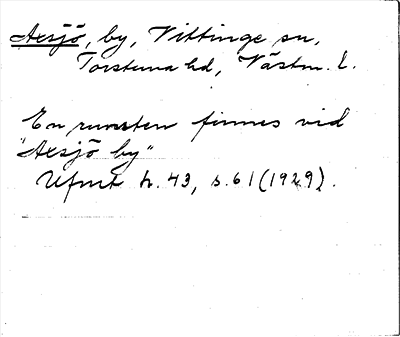 Axsjö, by, Vittinge sn,
Torstuna hd, Västm. l.
En runsten finnes vid
"Axsjö by"
Ufmt h. 43, s. 61 (1929).